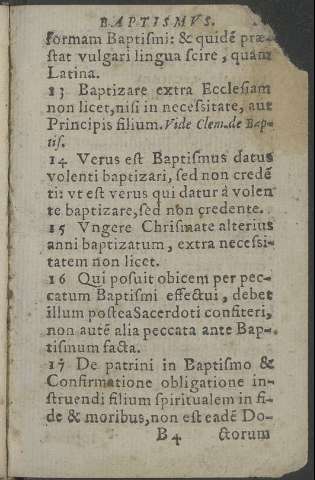 BAPTISMVS.
formam Baptiſmi: & quidē præ-
ſtat vulgari lingua ſcire, quàm
Latina.
13 Baptizare extra Eccleſiam
non licet, niſi in neceſsitate, aut
Principis filium. Vide Clem. de Bap-
tiſ.
14 Verus eſt Baptiſmus datus
volenti baptizari, ſed non credē
ti: vt eſt verus qui datur à volen
te baptizare, ſed non credente.
15 Vngere Chriſmate alterius
anni baptizatum, extra neceſsi-
tatem non licet.
16 Qui poſuit obicem per pec-
catum Baptiſmi effectui, debet
illum poſtea Sacerdoti confiteri,
non autē alia peccata ante Bap-
tiſmum facta.
17 De patrini in Baptiſmo &
Confirmatione obligatione in-
ſtruendi filium ſpiritualem in fi-
de & moribus, non eſt eadē Do-
B 4 ctorum